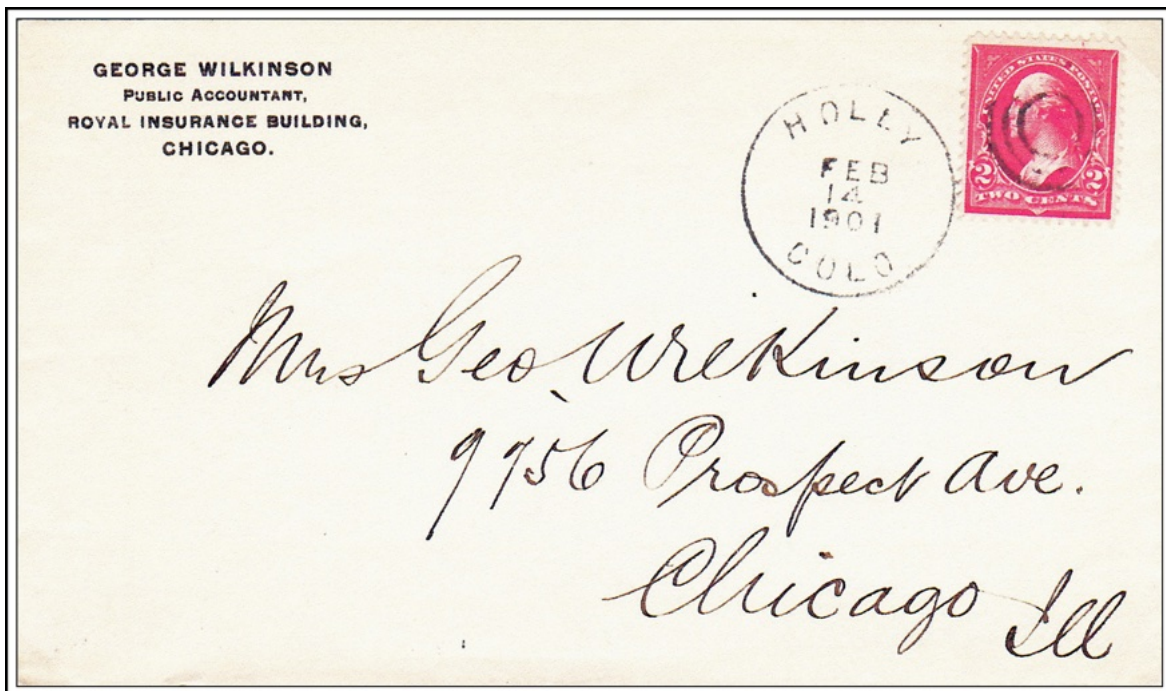 GEORGE WILKINSON
PUBLIC ACCOUNTANT,
ROYAL INSURANCE BUILDING,
CHICAGO.
HOLLY
FEB
14
1901
COLO
UNITED STATES POSTAGE
2 2
TWO CENTS
Mrs Geo. Wilkinson
9956 Prospect Ave.
Chicago Ill